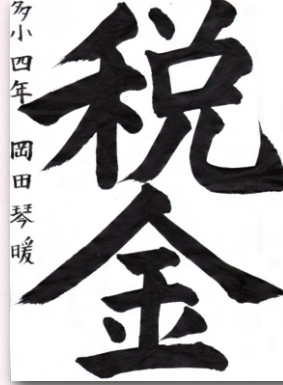 税金
多小四年 岡田琴暖